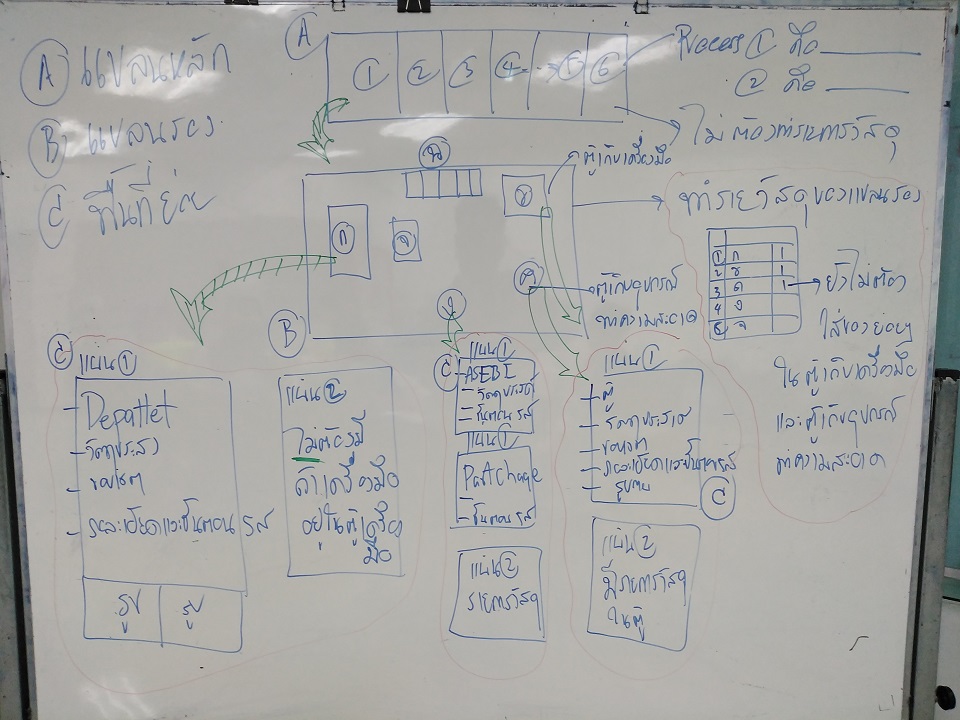 Ⓐ แปลนหลัก
Ⓑ แปลนรอง
Ⓒ พื้นที่ย่อย
Ⓐ
① ② ③ ④ ⑤ ⑥
Process ① คือ
② คือ
ไม่ต้องทำรายการวัสดุ
ตู้เก็บเครื่องมือ
ทำรายวัสดุของแปลนรอง
ก
ตู้เก็บอุปกรณ์
ทำความสะอาด
Ⓑ
1 ก 1
2 ข 1
3 ค 1
4 ง
5 จ
ยังไม่ต้อง
ใส่ของย่อยๆ
ใน ตู้เก็บเครื่องมือ
และตู้เก็บอุปกรณ์
ทำความสะอาด
Ⓒ แผ่น ①
Depallet
- วัตถุประสงค์
- ขอบเขต
- รายละเอียดและขั้นตอน 5ส
รูป รูป
แผ่น ②
ไม่ต้องมี
ถ้าเครื่องมือ
อยู่ในตู้เครื่อง
มือ
Ⓒ
แผ่น ①
- วัตถุประสงค์
- ขั้นตอน 5ส
แผ่น ①
Part Change
- ขั้นตอน 5ส
แผ่น ②
รายการวัสดุ
แผ่น ①
- ตู้
- วัตถุประสงค์
- ขอบเขต
- รายละเอียดและขั้นตอน 5ส
Ⓒ
แผ่น ②
มีรายการวัสดุ
ในตู้